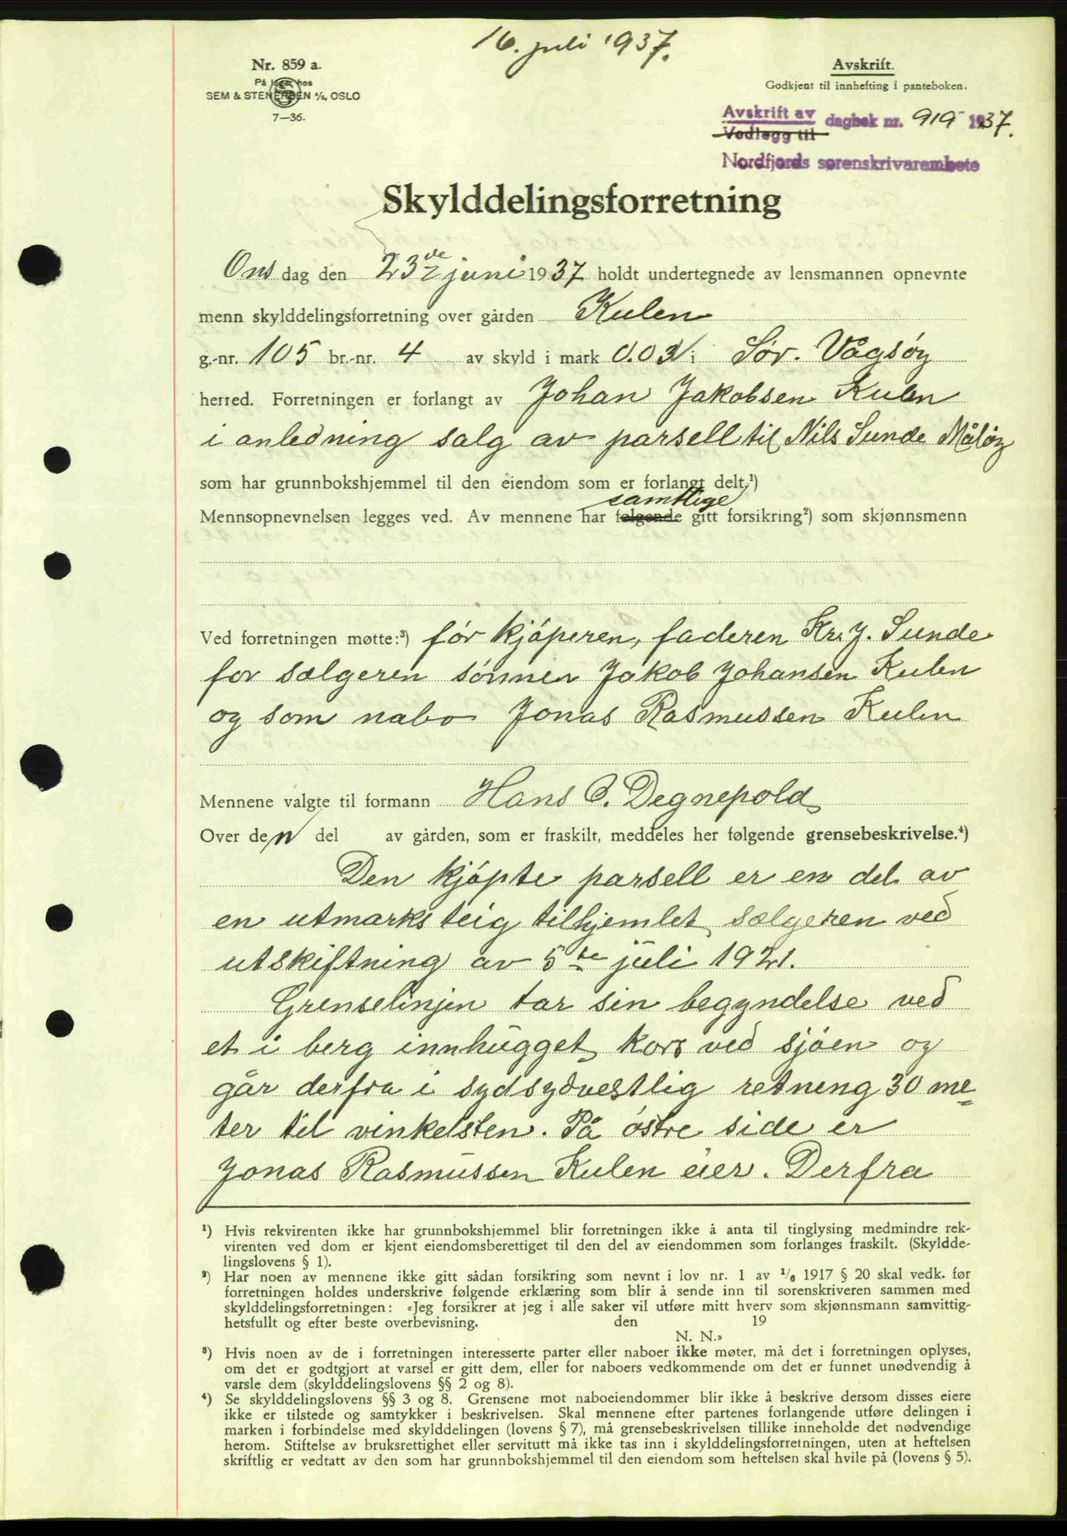 16. juli 1937.
Nr. 859 a.
På lager hos
SEM & STENERSEN A/S, OSLO
7—36.
Avskrift.
Godkjent til innhefting i panteboken.
Avskrift av
Vedlegg til
dagbok nr. 919 - 1937.
Nordfjords sorenskrivarembete
Skylddelingsforretning
Onsdag den 23de juni 1937 holdt undertegnede av lensmannen opnevnte
menn skylddelingsforretning over gården Kulen
g.-nr. 105 br.-nr. 4 av skyld i mark 0.03 i Sør. Vågsøy
herred. Forretningen er forlangt av Johan Jakobsen Kulen
i anledning salg av parsell til Nils Sunde Måløy
som har grunnbokshjemmel til den eiendom som er forlangt delt.¹)
samtlige
Mennsopnevnelsen legges ved. Av mennene har følgende gitt forsikring²) som skjønnsmenn
Ved forretningen møtte:³) før kjøperen, faderen Kr. J. Sunde
for sælgeren sønnen Jakob Johansen Kulen
og som nabo Jonas Rasmussen Kulen
Mennene valgte til formann Hans C. Degnepold
Over den del av gården, som er fraskilt, meddeles her følgende grensebeskrivelse.⁴)
Den kjøpte parsell er en del av
en utmarksteig tilhjemlet sælgeren ved
utskiftning av 5te juli 1921.
Grenselinjen tar sin begyndelse ved
et i berg innhugget kors ved sjøen og
går derfra i sydsydvestlig retning 30 me=
ter til vinkelsten. På østre side er
Jonas Rasmussen Kulen eier. Derfra
¹) Hvis rekvirenten ikke har grunnbokshjemmel blir forretningen ikke å anta til tinglysing medmindre rek-
virenten ved dom er kjent eiendomsberettiget til den del av eiendommen som forlanges fraskilt. (Skyldde-
lingslovens § 1).
²) Har noen av mennene ikke gitt sådan forsikring som nevnt i lov nr. 1 av 1/6 1917 § 20 skal vedk. før
forretningen holdes underskrive følgende erklæring som blir å sende inn til sorenskriveren sammen med
skylddelingsforretningen: «Jeg forsikrer at jeg i alle saker vil utføre mitt hverv som skjønnsmann samvittig-
hetsfullt og efter beste overbevisning. den 19
N. N.»
³) Hvis noen av de i forretningen interesserte parter eller naboer ikke møter, må det i forretningen oplyses,
om det er godtgjort at varsel er gitt dem, eller for naboers vedkommende om det er funnet unødvendig å
varsle dem (skylddelingslovens §§ 2 og 8).
⁴) Se skylddelingslovens §§ 3 og 8. Grensene mot naboeiendommer blir ikke å beskrive dersom disses eiere
ikke er tilstede og samtykker i beskrivelsen. Skal mennene efter partenes forlangende utføre delingen i
marken i forbindelse med skylddelingen (lovens § 7), må grensebeskrivelsen tillike inneholde det nødvendige
herom. Stiftelse av bruksrettighet eller servitutt må ikke tas inn i skylddelingsforretningen, uten at heftelsen
skriftlig er vedtatt av den som har grunnbokshjemmel til den eiendom som heftelsen skal hvile på (lovens § 5).